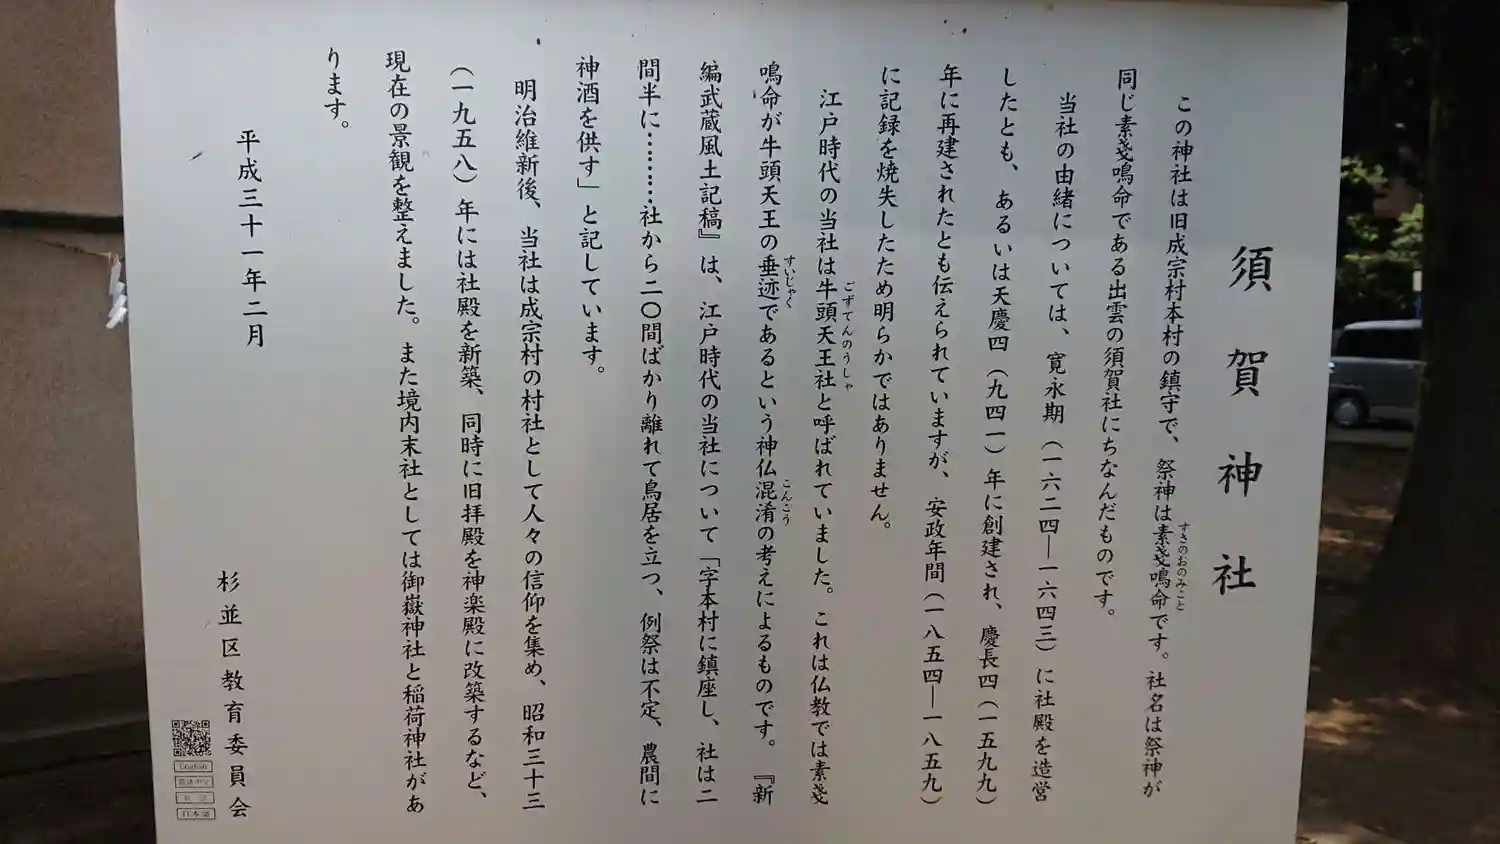 須賀神社
この神社は旧成宗村本村の鎮守で、祭神は素戔鳴命です。社名は祭神が
すさのおのみこと
同じ素戔鳴命である出雲の須賀社にちなんだものです。
当社の由緒については、寛永期（一六二四―一六四三）に社殿を造営
したとも、あるいは天慶四（九四一）年に創建され、慶長四（一五九九）
年に再建されたとも伝えられていますが、安政年間（一八五四―一八五九）
に記録を焼失したため明らかではありません。
江戸時代の当社は牛頭天王社と呼ばれていました。これは仏教では素戔
ごずてんのうしゃ
鳴命が牛頭天王の垂迹であるという神仏混淆の考えによるものです。『新
すいじゃく
こんこう
編武蔵風土記稿』は、江戸時代の当社について「字本村に鎮座し、社は二
間半に………社から二〇間ばかり離れて鳥居を立つ、例祭は不定、農間に
神酒を供す」と記しています。
明治維新後、当社は成宗村の村社として人々の信仰を集め、昭和三十三
（一九五八）年には社殿を新築、同時に旧拝殿を神楽殿に改築するなど、
現在の景観を整えました。また境内末社としては御嶽神社と稲荷神社があ
ります。
平成三十一年二月
杉並区教育委員会
English
日本語